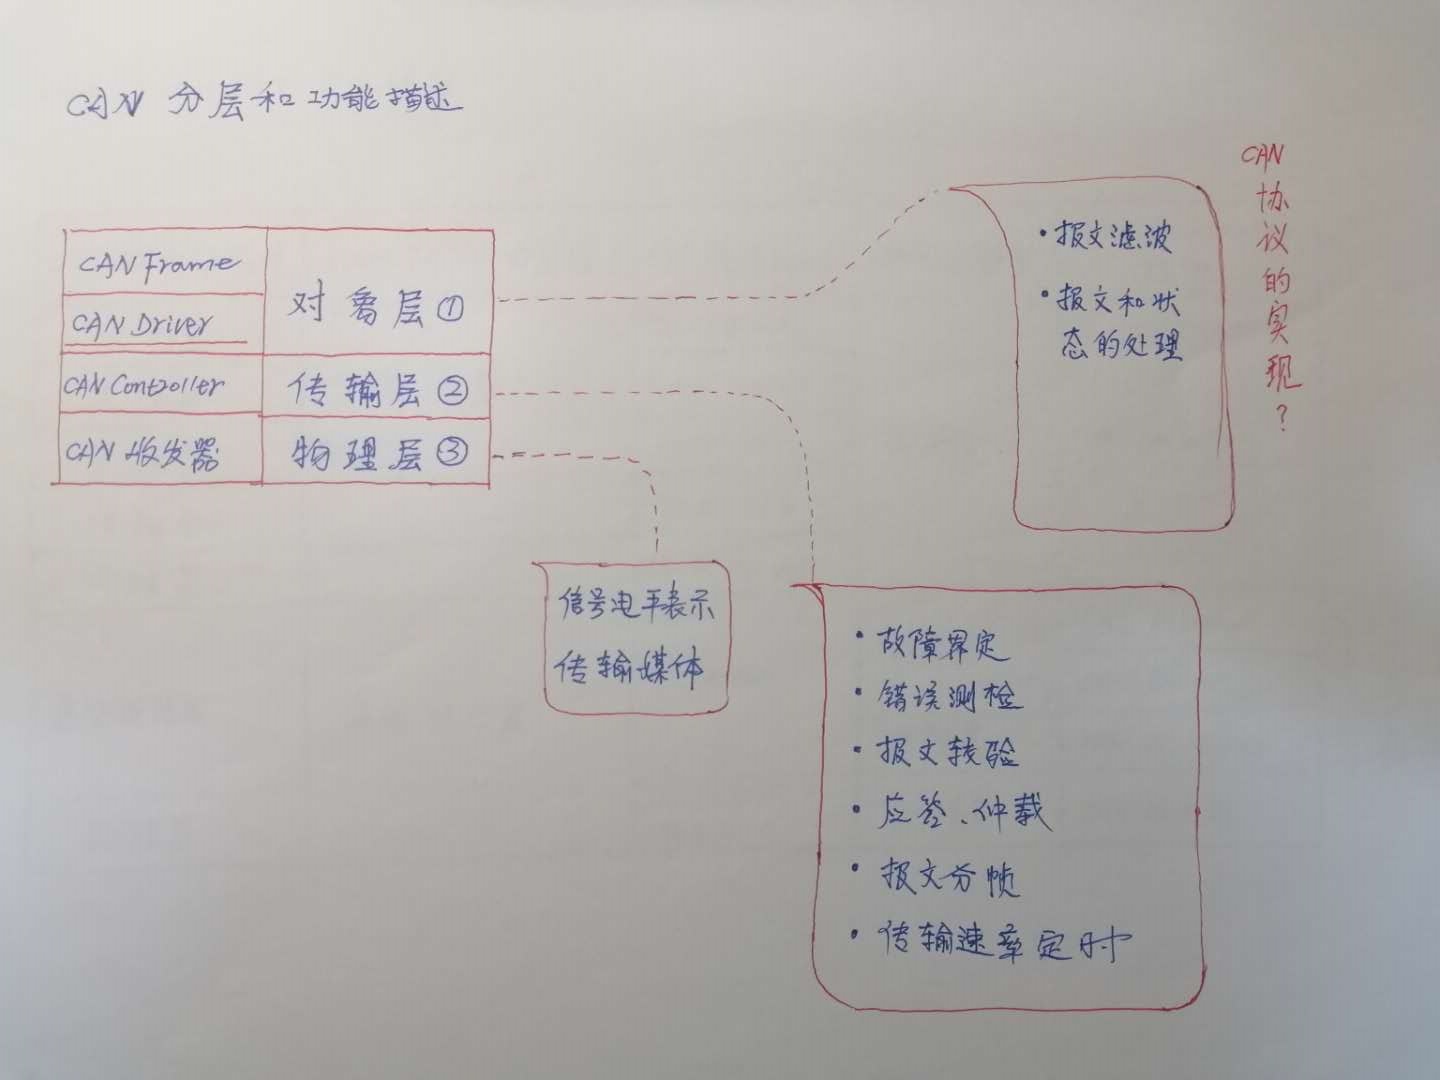 CAN 分层和功能描述
CAN Frame
CAN Driver
对象层①
CAN Controller
传输层②
CAN 收发器
物理层③
·报文滤波
·报文和状
态的处理
CAN协议的实现？
信号电平表示
传输媒体
·故障界定
·错误测检
·报文校验
·应答、仲裁
·报文分帧
·传输速率定时